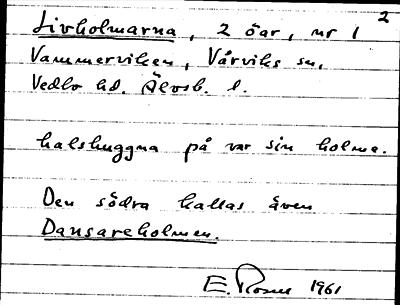 2
Livholmarna, 2 öar, nr 1
Vammerviken, Vårviks sn.
Vedbo hd. Älvsb. l.
halshuggna på var sin holme.
Den södra kallas även
Dansareholmen.
E. 1961